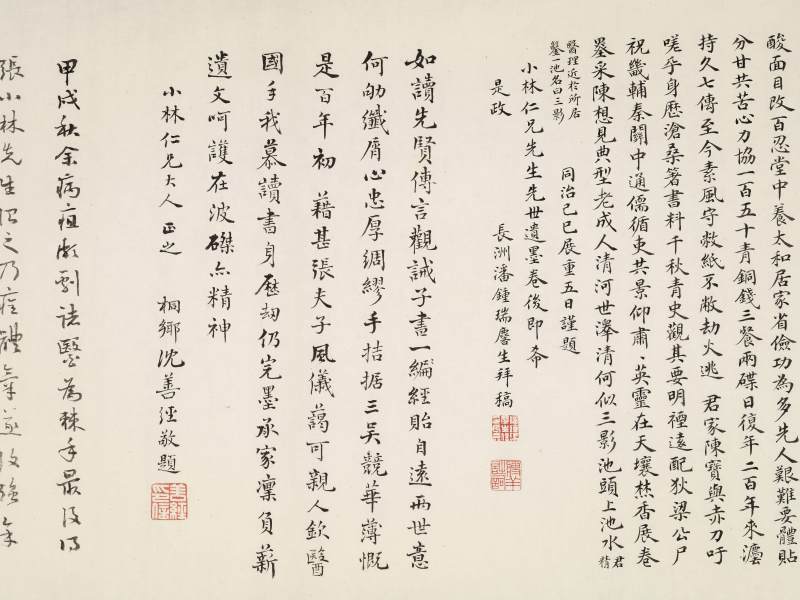 酸面目改百忍堂中養太和居家省儉功為多先人艱難要體貼
分甘共苦心力協一百五十青銅錢三餐兩碟日復年二百年來遵
持久七傳至今素風守敝紙不敝劫火逃 君家陳寶與赤刀吁
嗟乎身歷滄桑箸書料千秋青史觀其要明禋遠配狄梁公尸
祝畿輔秦關中通儒循吏共景仰肅、英靈在天壤焚香展卷
墨采陳想見典型老成人清河世澤清何似三影池頭上池水 君精
醫理近於所居
鑿一池名曰三影
同治己巳展重五日謹題
小林仁兄先生先世遺墨卷後即希
是政
長洲潘鍾瑞麐生拜稿
如讀先賢傳言觀誡子書一編經貽自遠兩世意
何劬纖屑心忠厚綢繆手拮据三吳競華薄慨
是百年初 藉甚張夫子風儀藹可親人欽醫
國手我慕讀書身歷劫仍完墨承家凜負薪
遺文呵護在波磔亦精神
小林仁兄大人正之 桐鄉沈善經敬題
甲戌秋余病疽瀕劇諸醫為棘手最後得
張小林先生治之乃痊體氣遂